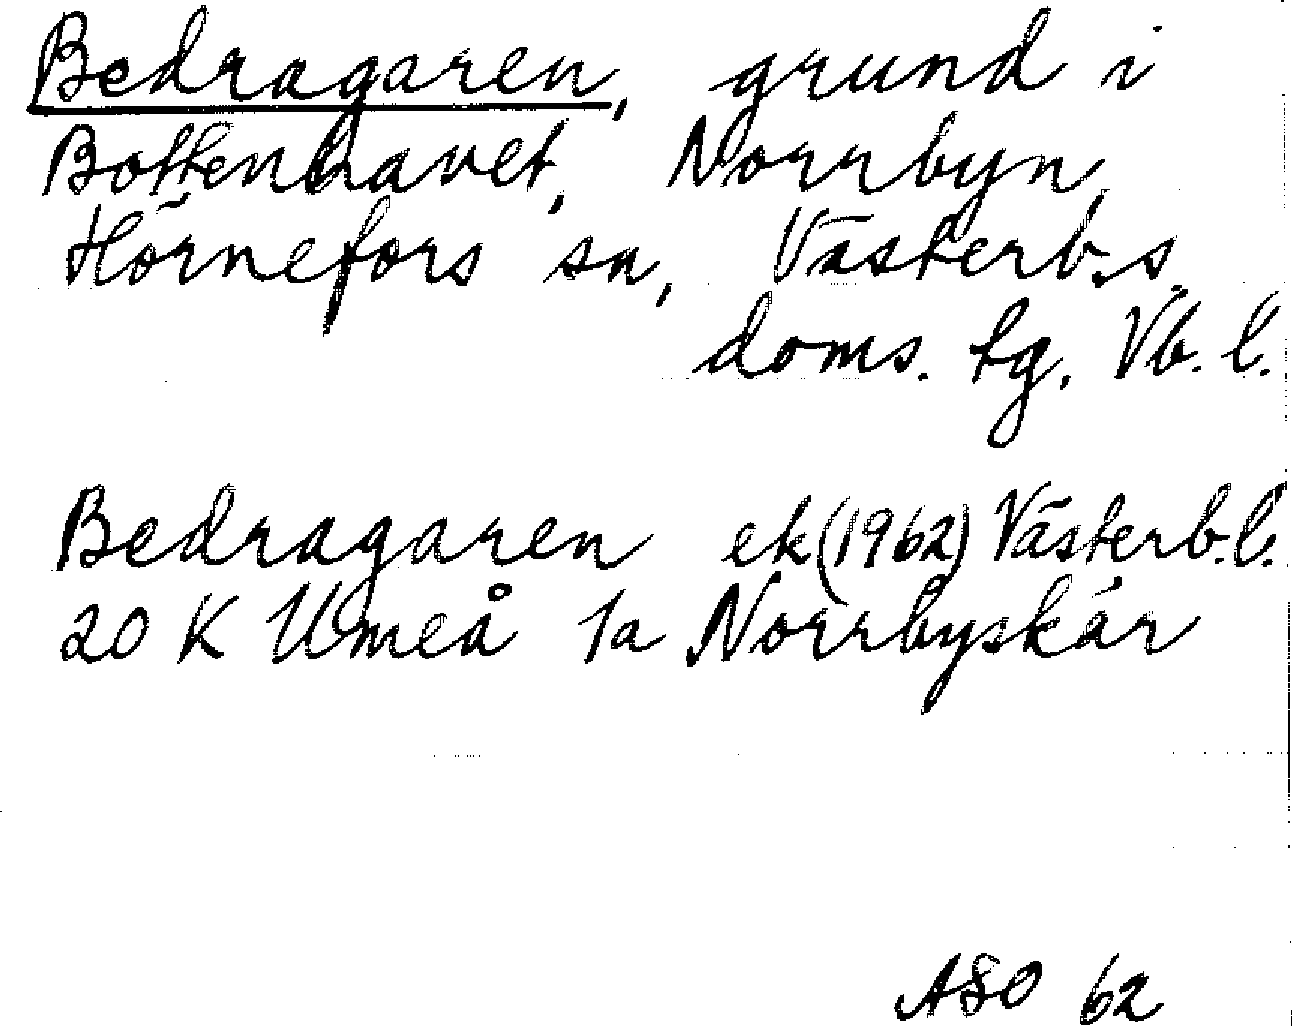 Bedragaren, grund i
Bottenhavet, Norrbyn,
Hörnefors sn, Västerb.s.
doms. tg, Vb. l.
Bedragaren ek (1962) Västerb.l.
20 K Umeå 1a Norrbyskär
ASO 62